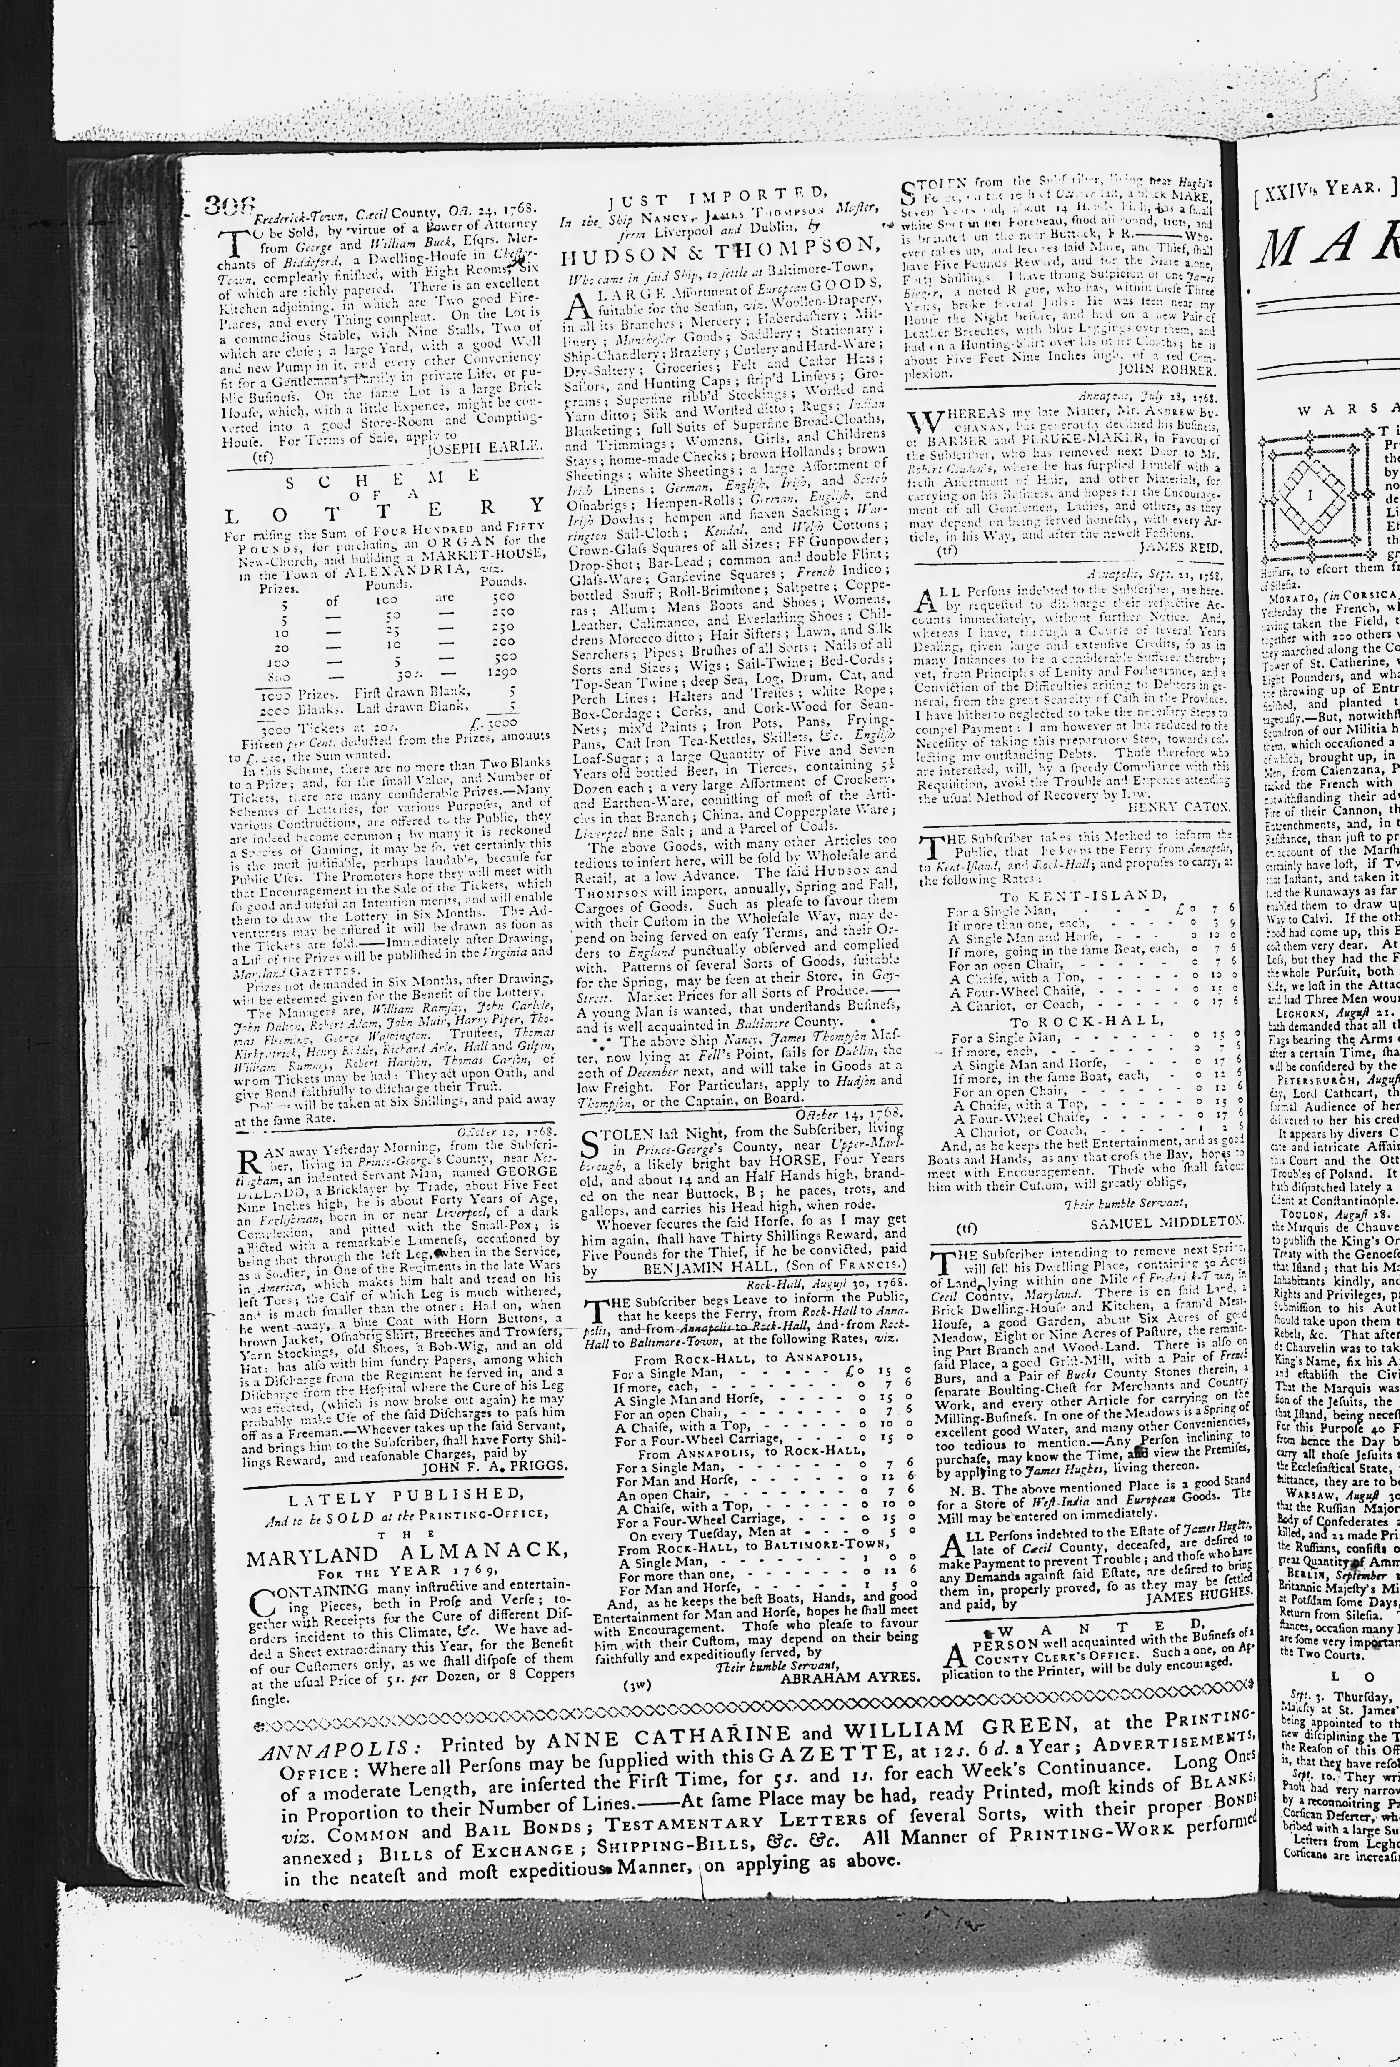 308
Frederick-Town, Cæcil County, Oct. 24, 1768.
TO be Sold, by virtue of a Power of Attorney
from George and William Buck, Esqrs. Mer-
chants of Biddeford, a Dwelling-House in Chester-
Town, compleatly finished, with Eight Rooms, Six
of which are richly papered. There is an excellent
Kitchen adjoining, in which are Two good Fire-
Places, and every Thing compleat. On the Lot is
a commodious Stable, with Nine Stalls, Two of
which are close; a large Yard, with a good Well
and new Pump in it, and every other Conveniency
fit for a Gentleman's Family in private Life, or pu-
blic Business. On the same Lot is a large Brick
House, which, with a little Expence, might be con-
verted into a good Store-Room and Compting-
House. For Terms of Sale, apply to
(tf) JOSEPH EARLE.
SCHEME
OF A
LOTTERY
For raising the Sum of FOUR HUNDRED and FIFTY
POUNDS, for purchasing an ORGAN for the
New-Church, and building a MARKET-HOUSE,
in the Town of ALEXANDRIA, viz.
Prizes. Pounds. Pounds.
5 of 100 are 500
5 — 50 — 250
10 — 25 — 250
20 — 10 — 200
100 — 5 — 500
860 — 30s. — 1290
1000 Prizes. First drawn Blank, 5
2000 Blanks. Last drawn Blank, 5
3000 Tickets at 20s. £. 3000
Fifteen per Cent. deducted from the Prizes, amounts
to £. 450, the Sum wanted.
In this Scheme, there are no more than Two Blanks
to a Prize; and, for the small Value, and Number of
Tickets, there are many considerable Prizes.—Many
Schemes of Lotteries, for various Purposes, and of
various Constructions, are offered to the Public, they
are indeed become common; by many it is reckoned
a Species of Gaming, it may be so, yet certainly this
is the most justifiable, perhaps laudable, because for
Public Uses. The Promoters hope they will meet with
that Encouragement in the Sale of the Tickets, which
so good and useful an Intention merits, and will enable
them to draw the Lottery in Six Months. The Ad-
venturers may be assured it will be drawn as soon as
the Tickets are sold.—Immediately after Drawing,
a List of the Prizes will be published in the Virginia and
Maryland GAZETTES.
Prizes not demanded in Six Months, after Drawing,
will be esteemed given for the Benefit of the Lottery.
The Managers are, William Ramsay, John Carlyle,
John Dalton, Robert Adam, John Muir, Harry Piper, Tho-
mas Fleming, George Washington. Trustees, Thomas
Kirkpatrick, Henry Riddle, Richard Arle, Hall and Gilpin,
William Rumney, Robert Harison, Thomas Carson, of
whom Tickets may be had: They act upon Oath, and
give Bond faithfully to discharge their Trust.
Dollars will be taken at Six Shillings, and paid away
at the same Rate.
October 12, 1768.
RAN away Yesterday Morning, from the Subscri-
ber, living in Prince-George's County, near Not-
tingham, an indented Servant Man, named GEORGE
DILLADD, a Bricklayer by Trade, about Five Feet
Nine Inches high, he is about Forty Years of Age,
an Englishman, born in or near Liverpool, of a dark
Complexion, and pitted with the Small-Pox; is
afflicted with a remarkable Lameness, occasioned by
being shot through the left Leg, when in the Service,
as a Soldier, in One of the Regiments in the late Wars
in America, which makes him halt and tread on his
left Toes; the Calf of which Leg is much withered,
and is much smaller than the other: Had on, when
he went away, a blue Coat with Horn Buttons, a
brown Jacket, Osnabrig Shirt, Breeches and Trowsers,
Yarn Stockings, old Shoes, a Bob-Wig, and an old
Hat: has also with him sundry Papers, among which
is a Discharge from the Regiment he served in, and a
Discharge from the Hospital where the Cure of his Leg
was effected, (which is now broke out again) he may
probably make Use of the said Discharges to pass him
off as a Freeman.—Whoever takes up the said Servant,
and brings him to the Subscriber, shall have Forty Shil-
lings Reward, and reasonable Charges, paid by
JOHN F. A. PRIGGS.
LATELY PUBLISHED,
And to be SOLD at the PRINTING-OFFICE,
THE
MARYLAND ALMANACK,
FOR THE YEAR 1769,
CONTAINING many instructive and entertain-
ing Pieces, both in Prose and Verse; to-
gether with Receipts for the Cure of different Dis-
orders incident to this Climate, &c. We have ad-
ded a Sheet extraordinary this Year, for the Benefit
of our Customers only, as we shall dispose of them
at the usual Price of 5s. per Dozen, or 8 Coppers
single.
JUST IMPORTED,
In the Ship NANCY, JAMES THOMPSON Master,
from Liverpool and Dublin, by
HUDSON & THOMPSON,
Who came in said Ship, to settle at Baltimore-Town,
A LARGE Assortment of European GOODS,
suitable for the Season, viz. Woollen-Drapery,
in all its Branches; Mercery; Haberdashery; Mil-
linery; Manchester Goods; Saddlery; Stationary;
Ship-Chandlery; Braziery; Cutlery and Hard-Ware;
Dry-Saltery; Groceries; Felt and Castor Hats;
Sailors, and Hunting Caps; strip'd Linseys; Gro-
grams; Superfine ribb'd Stockings; Worsted and
Yarn ditto; Silk and Worsted ditto; Rugs; Indian
Blanketing; full Suits of Superfine Broad-Cloaths,
and Trimmings; Womens, Girls, and Childrens
Stays; home-made Checks; brown Hollands; brown
Sheetings; white Sheetings; a large Assortment of
Irish Linens; German, English, Irish, and Scotch
Osnabrigs; Hempen-Rolls; German, English, and
Irish Dowlas; hempen and flaxen Sacking; War-
rington Sail-Cloth; Kendal, and Welsh Cottons;
Crown-Glass Squares of all Sizes; FF Gunpowder;
Drop-Shot; Bar-Lead; common and double Flint;
Glass-Ware; Gardevine Squares; French Indico;
bottled Snuff; Roll-Brimstone; Saltpetre; Coppe-
ras; Allum; Mens Boots and Shoes; Womens,
Leather, Calimanco, and Everlasting Shoes; Chil-
drens Morocco ditto; Hair Sifters; Lawn, and Silk
Searchers; Pipes; Brushes of all Sorts; Nails of all
Sorts and Sizes; Wigs; Sail-Twine; Bed-Cords;
Top-Sean Twine; deep Sea, Log, Drum, Cat, and
Perch Lines; Halters and Tresses; white Rope;
Box-Cordage; Corks, and Cork-Wood for Sean-
Nets; mix'd Paints; Iron Pots, Pans, Frying-
Pans, Cast Iron Tea-Kettles, Skillets, &c. English
Loaf-Sugar; a large Quantity of Five and Seven
Years old bottled Beer, in Tierces, containing 5½
Dozen each; a very large Assortment of Crockery,
and Earthen-Ware, consisting of most of the Arti-
cles in that Branch; China, and Copperplate Ware;
Liverpool fine Salt; and a Parcel of Coals.
The above Goods, with many other Articles too
tedious to insert here, will be sold by Wholesale and
Retail, at a low Advance. The said HUDSON and
THOMPSON will import, annually, Spring and Fall,
Cargoes of Goods. Such as please to favour them
with their Custom in the Wholesale Way, may de-
pend on being served on easy Terms, and their Or-
ders to England punctually observed and complied
with. Patterns of several Sorts of Goods, suitable
for the Spring, may be seen at their Store, in Gay-
Street. Market Prices for all Sorts of Produce.——
A young Man is wanted, that understands Business,
and is well acquainted in Baltimore County.
*⁎* The above Ship Nancy, James Thompson Mas-
ter, now lying at Fell's Point, sails for Dublin, the
20th of December next, and will take in Goods at a
low Freight. For Particulars, apply to Hudson and
Thompson, or the Captain, on Board.
October 14, 1768.
STOLEN last Night, from the Subscriber, living
in Prince-George's County, near Upper-Marl-
borough, a likely bright bay HORSE, Four Years
old, and about 14 and an Half Hands high, brand-
ed on the near Buttock, B; he paces, trots, and
gallops, and carries his Head high, when rode.
Whoever secures the said Horse, so as I may get
him again, shall have Thirty Shillings Reward, and
Five Pounds for the Thief, if he be convicted, paid
by BENJAMIN HALL, (Son of FRANCIS.)
Rock-Hall, August 30, 1768.
THE Subscriber begs Leave to inform the Public,
that he keeps the Ferry, from Rock-Hall to Anna-
polis, and from Annapolis to Rock-Hall, and from Rock-
Hall to Baltimore-Town, at the following Rates, viz.
From ROCK-HALL, to ANNAPOLIS,
For a Single Man, £0 15 0
If more, each, 0 7 6
A Single Man and Horse, 0 15 0
For an open Chair, 0 7 6
A Chaise, with a Top, 0 10 0
For a Four-Wheel Carriage, 0 15 0
From ANNAPOLIS, to ROCK-HALL,
For a Single Man, 0 7 6
For Man and Horse, 0 12 6
An open Chair, 0 7 6
A Chaise, with a Top, 0 10 0
For a Four-Wheel Carriage, 0 15 0
On every Tuesday, Men at 0 5 0
From ROCK-HALL, to BALTIMORE-TOWN,
A Single Man, 1 0 0
For more than one, 0 12 6
For Man and Horse, 1 5 0
And, as he keeps the best Boats, Hands, and good
Entertainment for Man and Horse, hopes he shall meet
with Encouragement. Those who please to favour
him with their Custom, may depend on their being
faithfully and expeditiously served, by
Their humble Servant,
(3w) ABRAHAM AYRES.
STOLEN from the Subscriber, living near Hugh's
black MARE,
Seven Years old, about 14 Hands high, has a small
white Spot in her Forehead, shod all round, trots, and
is branded on the near Buttock, FR.——Who-
ever takes up, and secures said Mare, and Thief, shall
have Five Pounds Reward, and for the Mare alone,
Forty Shillings. I have strong Suspicion of one James
a noted Rogue, who has, within these Three
Years, broke several Jails: He was seen near my
House the Night before, and had on a new Pair of
Leather Breeches, with blue Leggings over them, and
had on a Hunting-Shirt over his other Cloaths; he is
about Five Feet Nine Inches high, of a red Com-
plexion. JOHN ROHRER.
Annapolis, July 28, 1768.
WHEREAS my late Master, Mr. ANDREW BU-
CHANAN, has generously declined his Business,
of BARBER and PERUKE-MAKER, in Favour of
the Subscriber, who has removed next Door to Mr.
Robert Couden's, where he has supplied himself with a
fresh Assortment of Hair, and other Materials, for
carrying on his Business, and hopes for the Encourage-
ment of all Gentlemen, Ladies, and others, as they
may depend on being served honestly, with every Ar-
ticle, in his Way, and after the newest Fashions.
(tf) JAMES REID.
Annapolis, Sept. 21, 1768.
ALL Persons indebted to the Subscriber, are here-
by requested to discharge their respective Ac-
counts immediately, without further Notice. And,
whereas I have, through a Course of several Years
Dealing, given large and extensive Credits, so as in
many Instances to be a considerable Sufferer thereby;
yet, from Principles of Lenity and Forbearance, and a
Conviction of the Difficulties arising to Debtors in ge-
neral, from the great Scarcity of Cash in the Province,
I have hitherto neglected to take the necessary Steps to
compel Payment: I am however at last reduced to the
Necessity of taking this preparatory Step, towards col-
lecting my outstanding Debts. Those therefore who
are interested, will, by a speedy Compliance with this
Requisition, avoid the Trouble and Expence attending
the usual Method of Recovery by Law.
HENRY CATON.
THE Subscriber takes this Method to inform the
Public, that he keeps the Ferry from Annapolis,
to Kent-Island, and Rock-Hall, and proposes to carry, at
the following Rates:
To KENT-ISLAND,
For a Single Man, £0 7 6
If more than one, each, 0 3 9
A Single Man and Horse, 0 10 0
If more, going in the same Boat, each, 0 7 6
For an open Chair, 0 7 6
A Chaise, with a Top, 0 10 0
A Four-Wheel Chaise, 0 15 0
A Chariot, or Coach, 0 17 6
To ROCK-HALL,
For a Single Man, 0 15 0
If more, each, 0 7 6
A Single Man and Horse, 0 17 6
If more, in the same Boat, each, 0 12 6
For an open Chair, 0 12 6
A Chaise, with a Top, 0 15 0
A Four-Wheel Chaise, 0 17 6
A Chariot, or Coach, 1 2 6
And, as he keeps the best Entertainment, and as good
Boats and Hands, as any that cross the Bay, hopes to
meet with Encouragement. Those who shall favour
him with their Custom, will greatly oblige,
Their humble Servant,
(tf) SAMUEL MIDDLETON.
THE Subscriber intending to remove next Spring,
will sell his Dwelling Place, containing 30 Acres
of Land, lying within one Mile of Frederick-Town, in
Cecil County, Maryland. There is on said Land, a
Brick Dwelling-House and Kitchen, a fram'd Meat-
House, a good Garden, about Six Acres of good
Meadow, Eight or Nine Acres of Pasture, the remain-
ing Part Branch and Wood-Land. There is also on
said Place, a good Grist-Mill, with a Pair of French
Burs, and a Pair of Bucks County Stones therein, a
separate Boulting-Chest for Merchants and Country
Work, and every other Article for carrying on the
Milling-Business. In one of the Meadows is a Spring of
excellent good Water, and many other Conveniencies,
too tedious to mention.—Any Person inclining to
purchase, may know the Time, and view the Premises,
by applying to James Hughes, living thereon.
N. B. The above mentioned Place is a good Stand
for a Store of West-India and European Goods. The
Mill may be entered on immediately.
ALL Persons indebted to the Estate of James Hughes,
late of Cæcil County, deceased, are desired to
make Payment to prevent Trouble; and those who have
any Demands against said Estate, are desired to bring
them in, properly proved, so as they may be settled
and paid, by JAMES HUGHES.
WANTED,
A PERSON well acquainted with the Business of a
COUNTY CLERK'S OFFICE. Such a one, on Ap-
plication to the Printer, will be duly encouraged.
ANNAPOLIS: Printed by ANNE CATHARINE and WILLIAM GREEN, at the PRINTING-
OFFICE: Where all Persons may be supplied with this GAZETTE, at 12s. 6 d. a Year; ADVERTISEMENTS,
of a moderate Length, are inserted the First Time, for 5s. and 1s. for each Week's Continuance. Long Ones
in Proportion to their Number of Lines.——At same Place may be had, ready Printed, most kinds of BLANKS,
viz. COMMON and BAIL BONDS; TESTAMENTARY LETTERS of several Sorts, with their proper BONDS
annexed; BILLS of EXCHANGE; SHIPPING-BILLS, &c. &c. All Manner of PRINTING-WORK performed
in the neatest and most expeditious Manner, on applying as above.
[XXIVth YEAR.]
MAR
WARSA